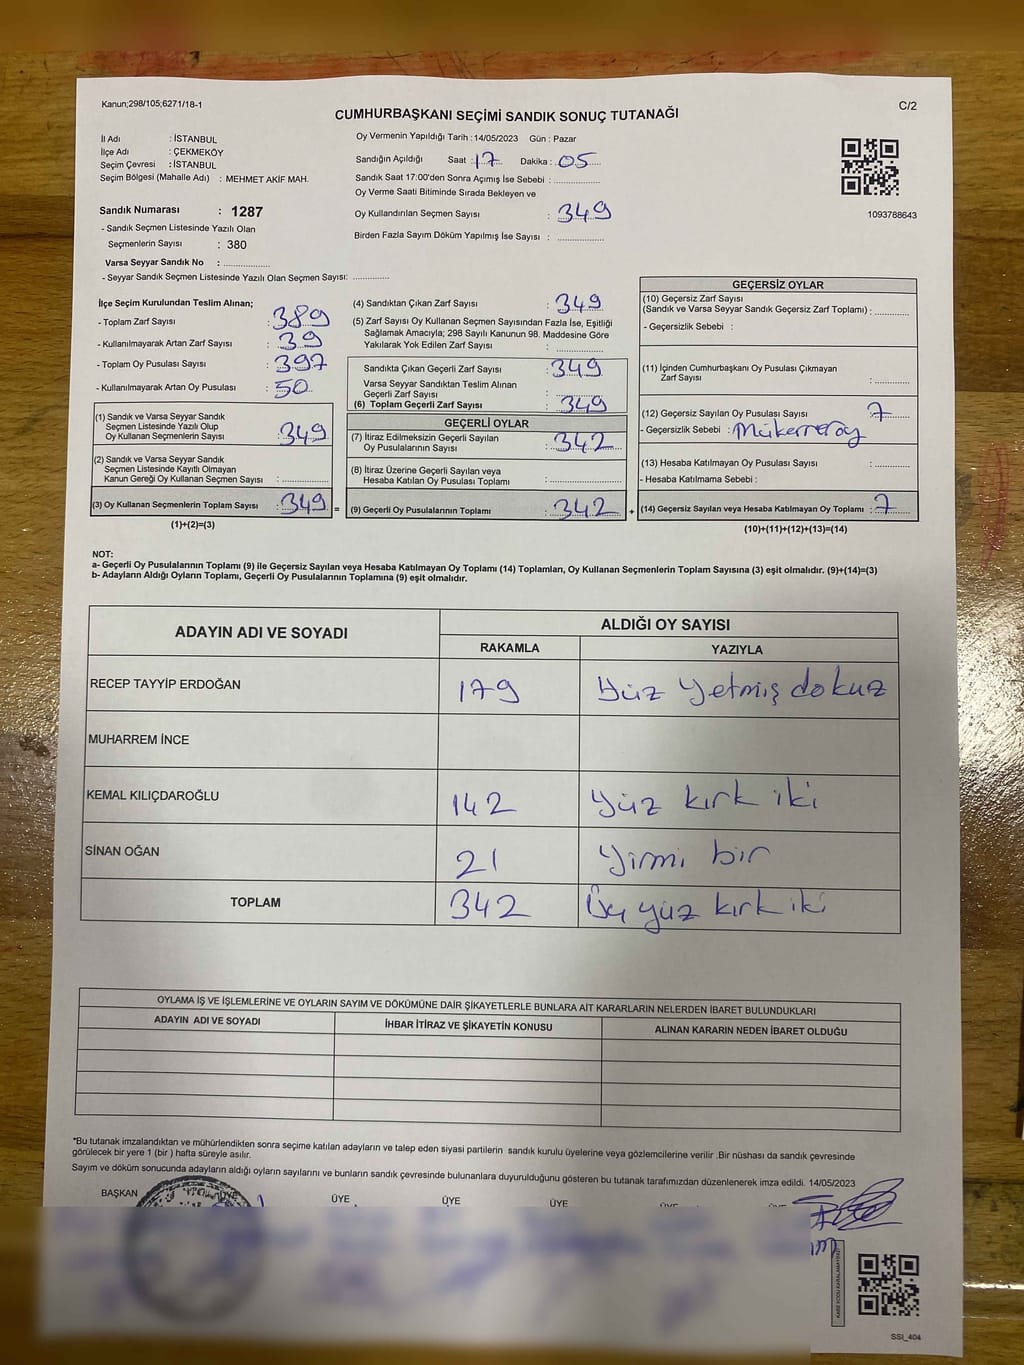 Kanun;298/105;6271/18-1
C/2
CUMHURBAŞKANI SEÇİMİ SANDIK SONUÇ TUTANAĞI
İl Adı : İSTANBUL
İlçe Adı : ÇEKMEKÖY
Seçim Çevresi : İSTANBUL
Seçim Bölgesi (Mahalle Adı) : MEHMET AKİF MAH.
Sandık Numarası : 1287
- Sandık Seçmen Listesinde Yazılı Olan
Seçmenlerin Sayısı : 380
Varsa Seyyar Sandık No : ..................
- Seyyar Sandık Seçmen Listesinde Yazılı Olan Seçmen Sayısı: .............
Oy Vermenin Yapıldığı Tarih : 14/05/2023 Gün : Pazar
Sandığın Açıldığı Saat : 17 Dakika : 05
Sandık Saat 17:00'den Sonra Açımış İse Sebebi : ..................
Oy Verme Saati Bitiminde Sırada Bekleyen ve
Oy Kullandırılan Seçmen Sayısı : 349
Birden Fazla Sayım Döküm Yapılmış İse Sayısı : ..................
1093788643
İlçe Seçim Kurulundan Teslim Alınan;
- Toplam Zarf Sayısı : 389
- Kullanılmayarak Artan Zarf Sayısı : 39
- Toplam Oy Pusulası Sayısı : 397
- Kullanılmayarak Artan Oy Pusulası : 50
(1) Sandık ve Varsa Seyyar Sandık
Seçmen Listesinde Yazılı Olup
Oy Kullanan Seçmenlerin Sayısı : 349
(2) Sandık ve Varsa Seyyar Sandık
Seçmen Listesinde Kayıtlı Olmayan
Kanun Gereği Oy Kullanan Seçmen Sayısı : ..................
(3) Oy Kullanan Seçmenlerin Toplam Sayısı : 349 =
(1)+(2)=(3)
(4) Sandıktan Çıkan Zarf Sayısı : 349
(5) Zarf Sayısı Oy Kullanan Seçmen Sayısından Fazla İse, Eşitliği
Sağlamak Amacıyla; 298 Sayılı Kanunun 98. Maddesine Göre
Yakılarak Yok Edilen Zarf Sayısı : ..................
Sandıkta Çıkan Geçerli Zarf Sayısı : 349
Varsa Seyyar Sandıktan Teslim Alınan
Geçerli Zarf Sayısı : ..................
(6) Toplam Geçerli Zarf Sayısı : 349
GEÇERLİ OYLAR
(7) İtiraz Edilmeksizin Geçerli Sayılan
Oy Pusulalarının Sayısı : 342
(8) İtiraz Üzerine Geçerli Sayılan veya
Hesaba Katılan Oy Pusulası Toplamı : ..................
(9) Geçerli Oy Pusulalarının Toplamı : 342 +
GEÇERSİZ OYLAR
(10) Geçersiz Zarf Sayısı
(Sandık ve Varsa Seyyar Sandık Geçersiz Zarf Toplamı) : .............
- Geçersizlik Sebebi :
(11) İçinden Cumhurbaşkanı Oy Pusulası Çıkmayan
Zarf Sayısı : .............
(12) Geçersiz Sayılan Oy Pusulası Sayısı 7
- Geçersizlik Sebebi :
(13) Hesaba Katılmayan Oy Pusulası Sayısı : .............
- Hesaba Katılmama Sebebi :
(14) Geçersiz Sayılan veya Hesaba Katılmayan Oy Toplamı : 7
(10)+(11)+(12)+(13)=(14)
NOT:
a- Geçerli Oy Pusulalarının Toplamı (9) ile Geçersiz Sayılan veya Hesaba Katılmayan Oy Toplamı (14) Toplamları, Oy Kullanan Seçmenlerin Toplam Sayısına (3) eşit olmalıdır. (9)+(14)=(3)
b- Adayların Aldığı Oyların Toplamı, Geçerli Oy Pusulalarının Toplamına (9) eşit olmalıdır.
ADAYIN ADI VE SOYADI
ALDIĞI OY SAYISI
RAKAMLA YAZIYLA
RECEP TAYYİP ERDOĞAN 179 Yüz yetmiş dokuz
MUHARREM İNCE
KEMAL KILIÇDAROĞLU 142 Yüz kırk iki
SİNAN OĞAN 21 Yirmi bir
TOPLAM 342 Üç yüz kırk iki
OYLAMA İŞ VE İŞLEMLERİNE VE OYLARIN SAYIM VE DÖKÜMÜNE DAİR ŞİKAYETLERLE BUNLARA AİT KARARLARIN NELERDEN İBARET BULUNDUKLARI
ADAYIN ADI VE SOYADI İHBAR İTİRAZ VE ŞİKAYETİN KONUSU ALINAN KARARIN NEDEN İBARET OLDUĞU
*Bu tutanak imzalandıktan ve mühürlendikten sonra seçime katılan adayların ve talep eden siyasi partilerin sandık kurulu üyelerine veya gözlemcilerine verilir .Bir nüshası da sandık çevresinde
görülecek bir yere 1 (bir ) hafta süreyle asılır.
Sayım ve döküm sonucunda adayların aldığı oyların sayılarını ve bunların sandık çevresinde bulunanlara duyurulduğunu gösteren bu tutanak tarafımızdan düzenlenerek imza edildi. 14/05/2023
BAŞKAN ÜYE ÜYE ÜYE ÜYE
SSI_404